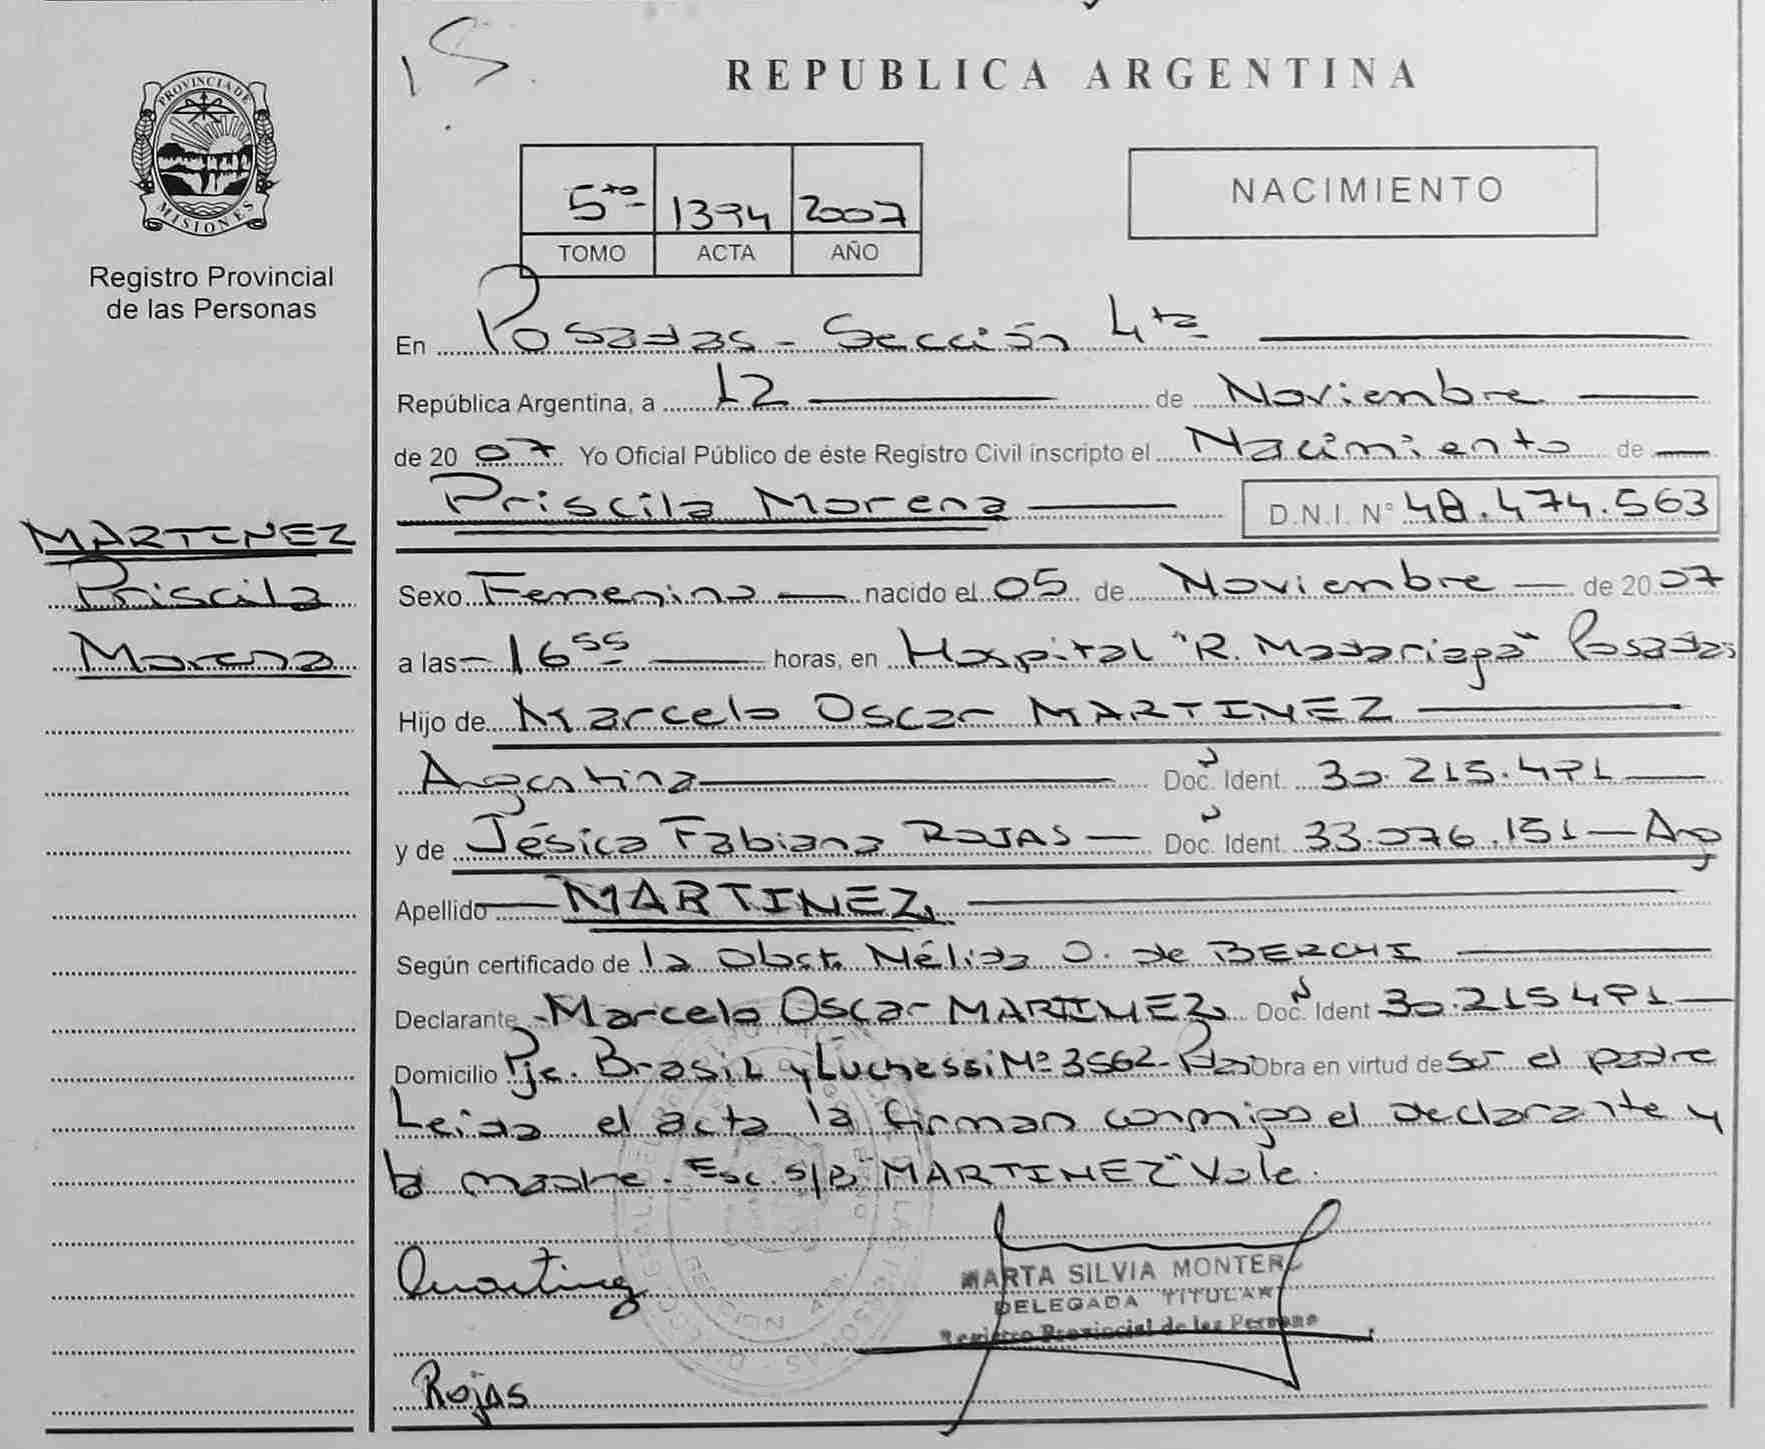 PROVINCIA DE
MISIONES
Registro Provincial
de las Personas
MARTINEZ
Priscila
Morena
REPUBLICA ARGENTINA
5to 1394 2007
TOMO ACTA AÑO
NACIMIENTO
En Posadas - Sección 4ta
República Argentina, a 12 de Noviembre
de 2007 Yo Oficial Público de éste Registro Civil inscripto el Nacimiento de
Priscila Morena D.N.I. Nº 48.474.563
Sexo Femenino nacido el 05 de Noviembre de 2007
a las 16 55 horas, en Hospital "R. Madariaga" Posadas
Hijo de Marcelo Oscar MARTINEZ
Argentina Doc. Ident. 30.215.491
y de Jésica Fabiana ROJAS Doc. Ident. 33.076.151 - Arg
Apellido MARTINEZ
Según certificado de la Obst. Nélida O. de BERCHI
Declarante Marcelo Oscar MARTINEZ Doc. Ident 30.215491
Domicilio Pje. Brasil y Luchessi Nº 3562 - Pdas Obra en virtud de ser el padre
Leida el acta la firman conmigo el declarante y
la madre. Esc. S/B "MARTINEZ" Vale.
MARTA SILVIA MONTERO
DELEGADA TITULAR
Registro Provincial de las Personas
Rojas